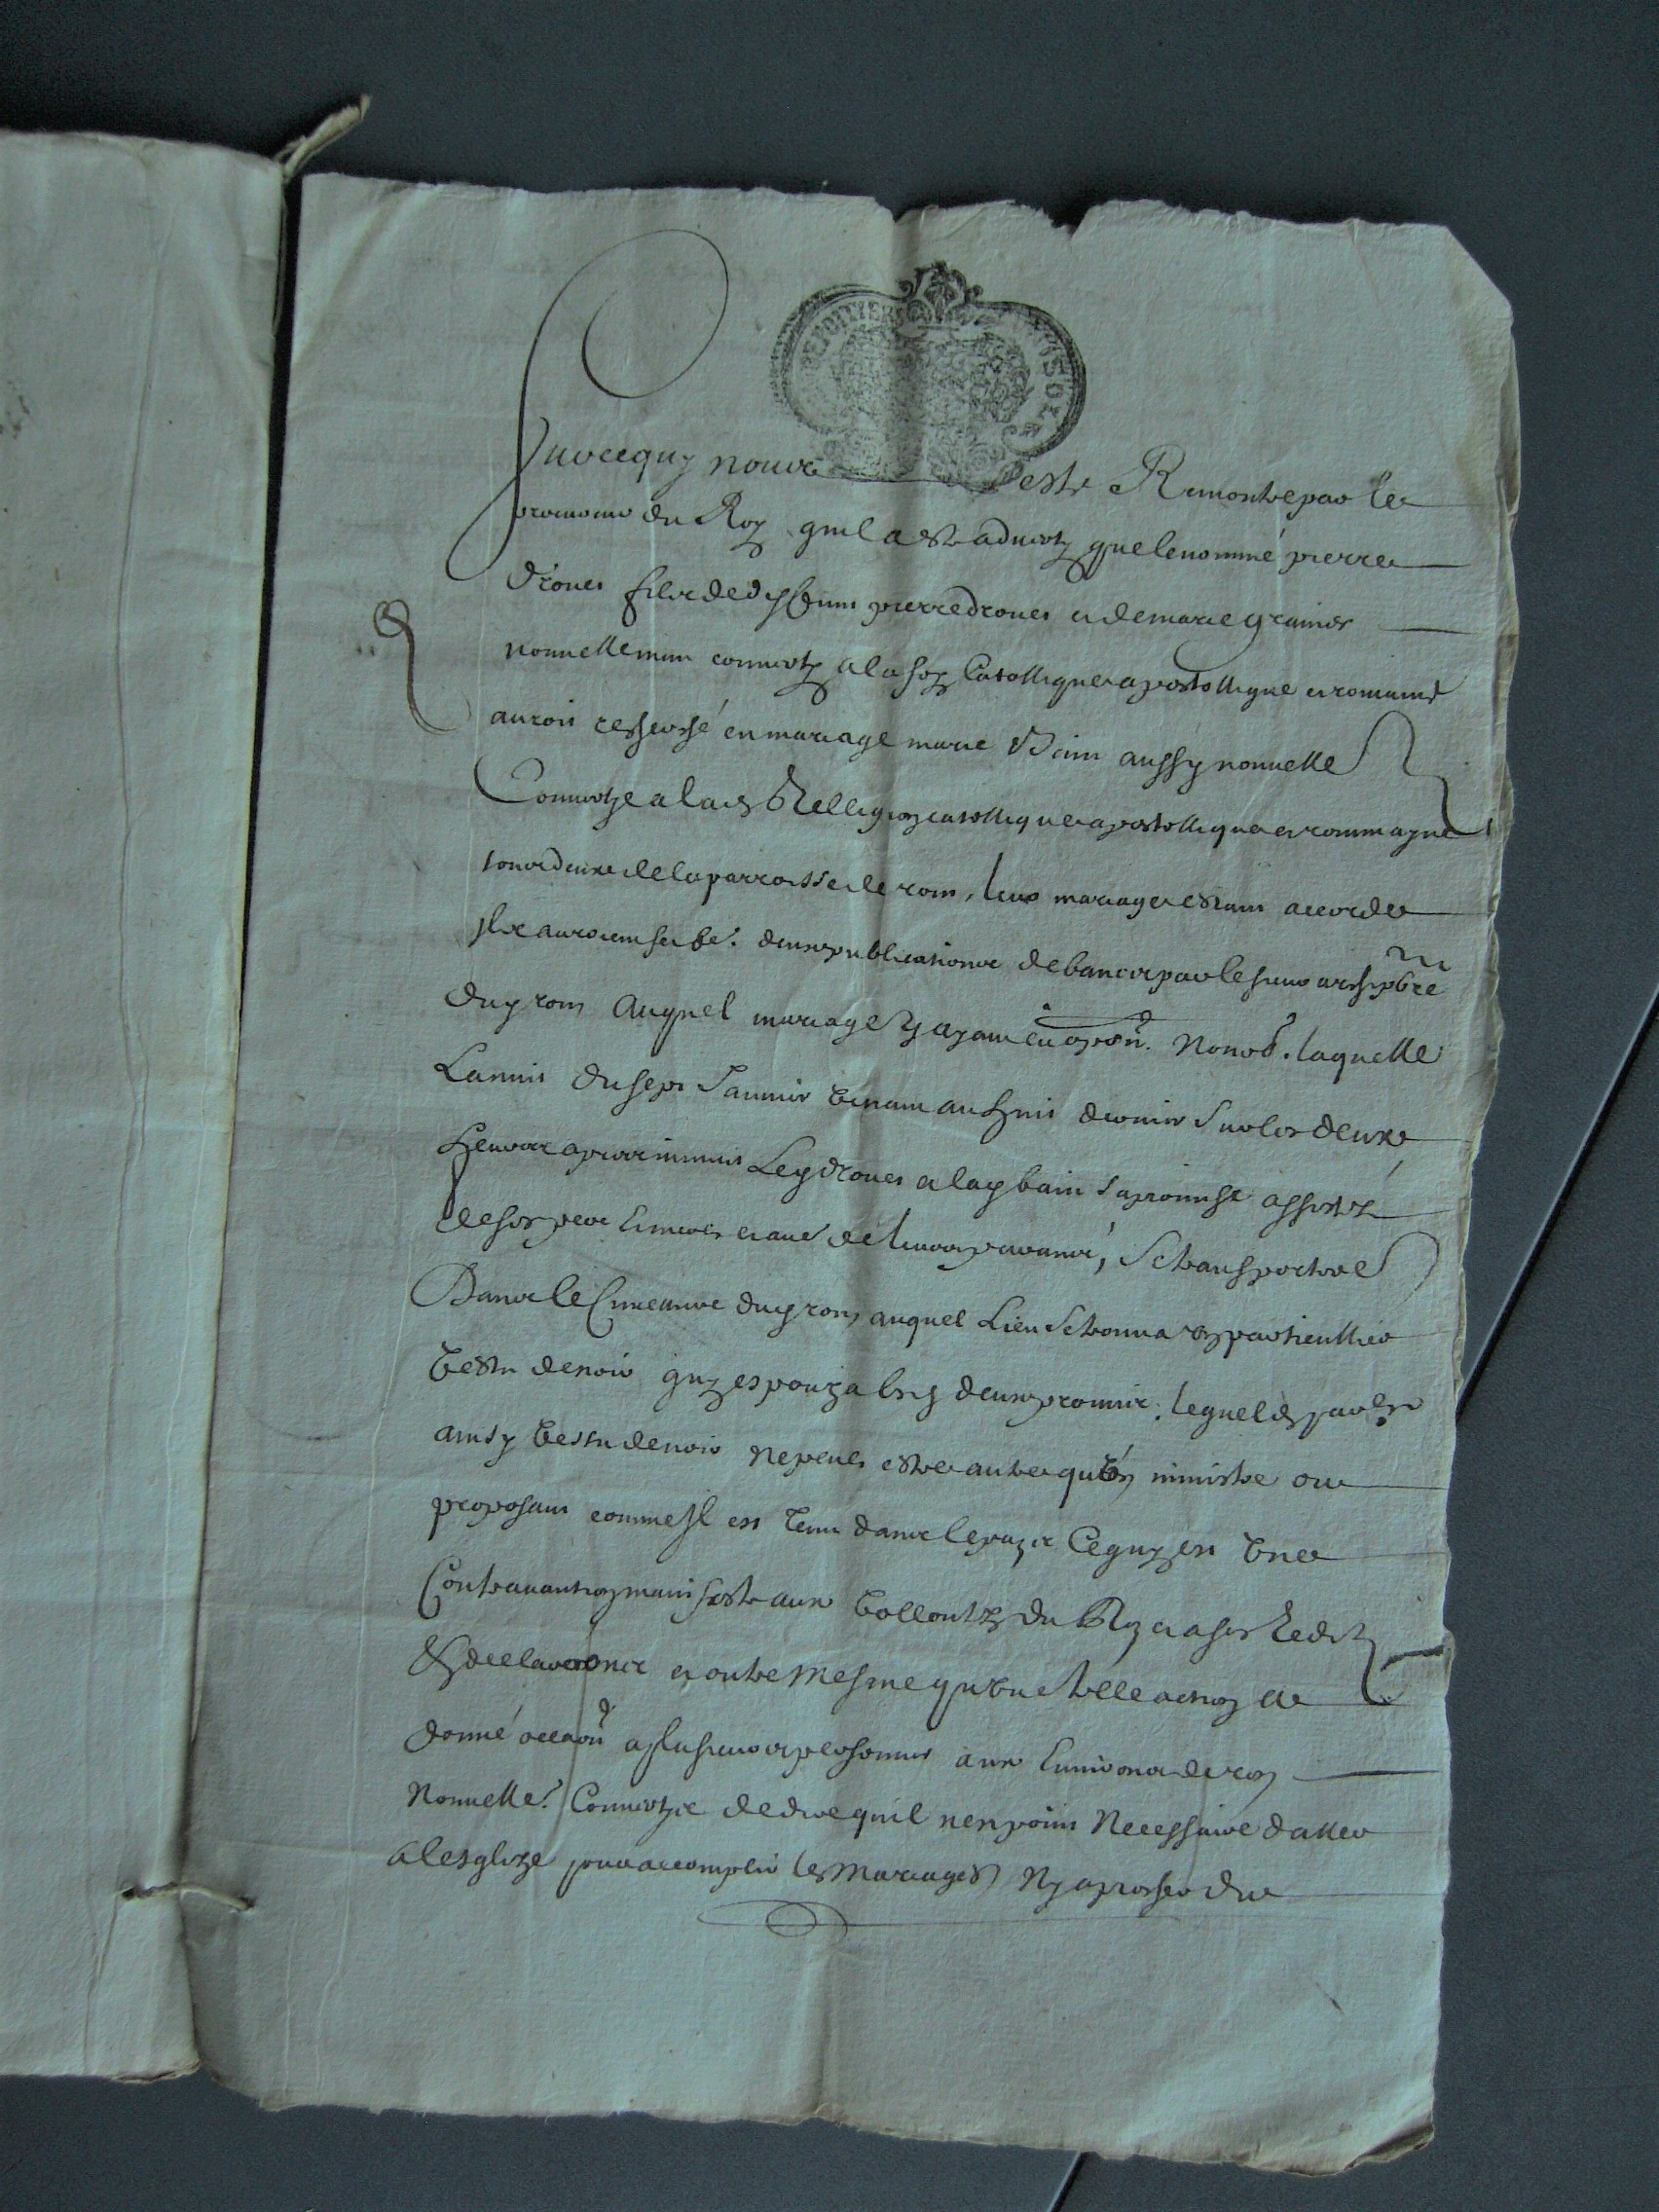 DE POITIERS SOLS
Sur ce quy nous a esté Remontré par le
procureur du Roy quil a esté adverty que le nommé pierre
drouet filz de deffunt pierre drouet et de marie
nouvellement converty a la foy Catollique apostollique et romaine
auroit resserssé en mariage marie Bain aussy nouvelle
Convertye a lad Relligion catollique apostollique et rommayne
tous deux de la parroisse de rom, leur mariage estant accordé
Ilz auroient dune publications de bancs par le sieur arsiprbre
dud rom Auquel mariage y ayant eu opon. laquelle
La nuit du sept Janvier venant au huit dernier sur les deux
heures apres minuit Led drouet a lad bain sa promise assisté
de ses pere et mere et aud de leurs parants, Se transporterent
Dans le Simetiere dud rom, auquel Lieu Se trouva un particullier
Vestu de noir quy espouza lesd deux promis. lequel dit particullier
ainsy vestu de noir ne peut estre autre qu'un ministre ou
proposant comme Il est tenu dans le pays Ce quy est Une
Contravantion manifeste aux Vollontés du Roy et a ses Eedits
Et declarations et outre Mesme qu'une telle action a
donné occaon a plusieurs personnes aux Environs de rom
Nouvelle. Convertye de dire quil nest point Necessaire daller
a lesglize pour accomplir les Mariages Ny aprosser du